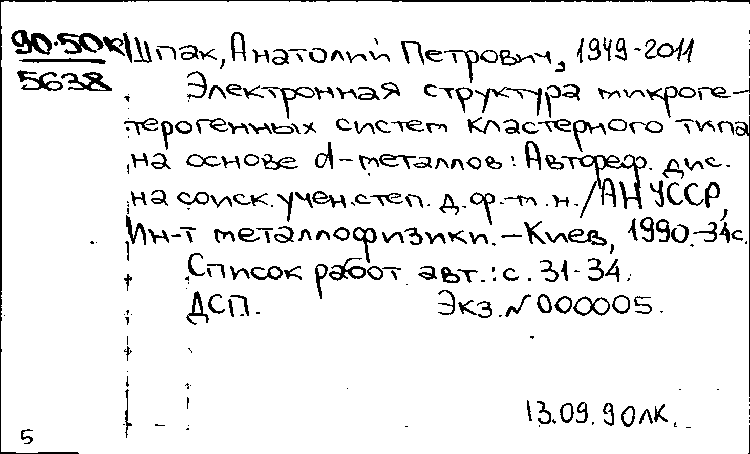 90-50к Шпак, Анатолий Петрович, 1949-2011
5638
Электронная структура микроге-
терогенных систем кластерного типа
на основе d-металлов: Автореф. дис.
на соиск. учен. степ. д. ф.-м. н. / АН УССР,
Ин-т металлофизики. – Киев, 1990.-34с.
Список работ авт.: с. 31-34.
ДСП. Экз. N 000005.
13.09.90 лк.
5